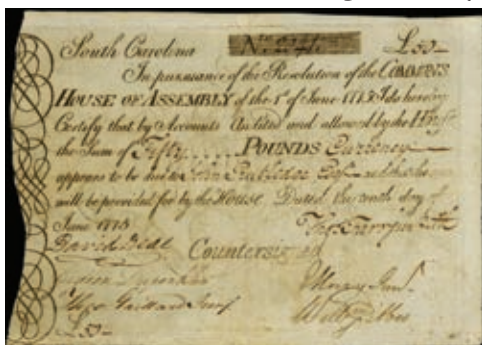 South Carolina No. 234. £50-
In pursuance of the Resolution of the COMMONS
HOUSE OF ASSEMBLY of the 1st of June 1775 I do hereby
Certify that by Accounts Audited and allowed by the House
the Sum of Fifty POUNDS Currency
appears to be due to John Rutledge Esqr. which
will be provided for by the House. Dated the tenth day of
June 1775
Thos. Farr
David
Countersigned
Theo Gaillard Junr
£50-